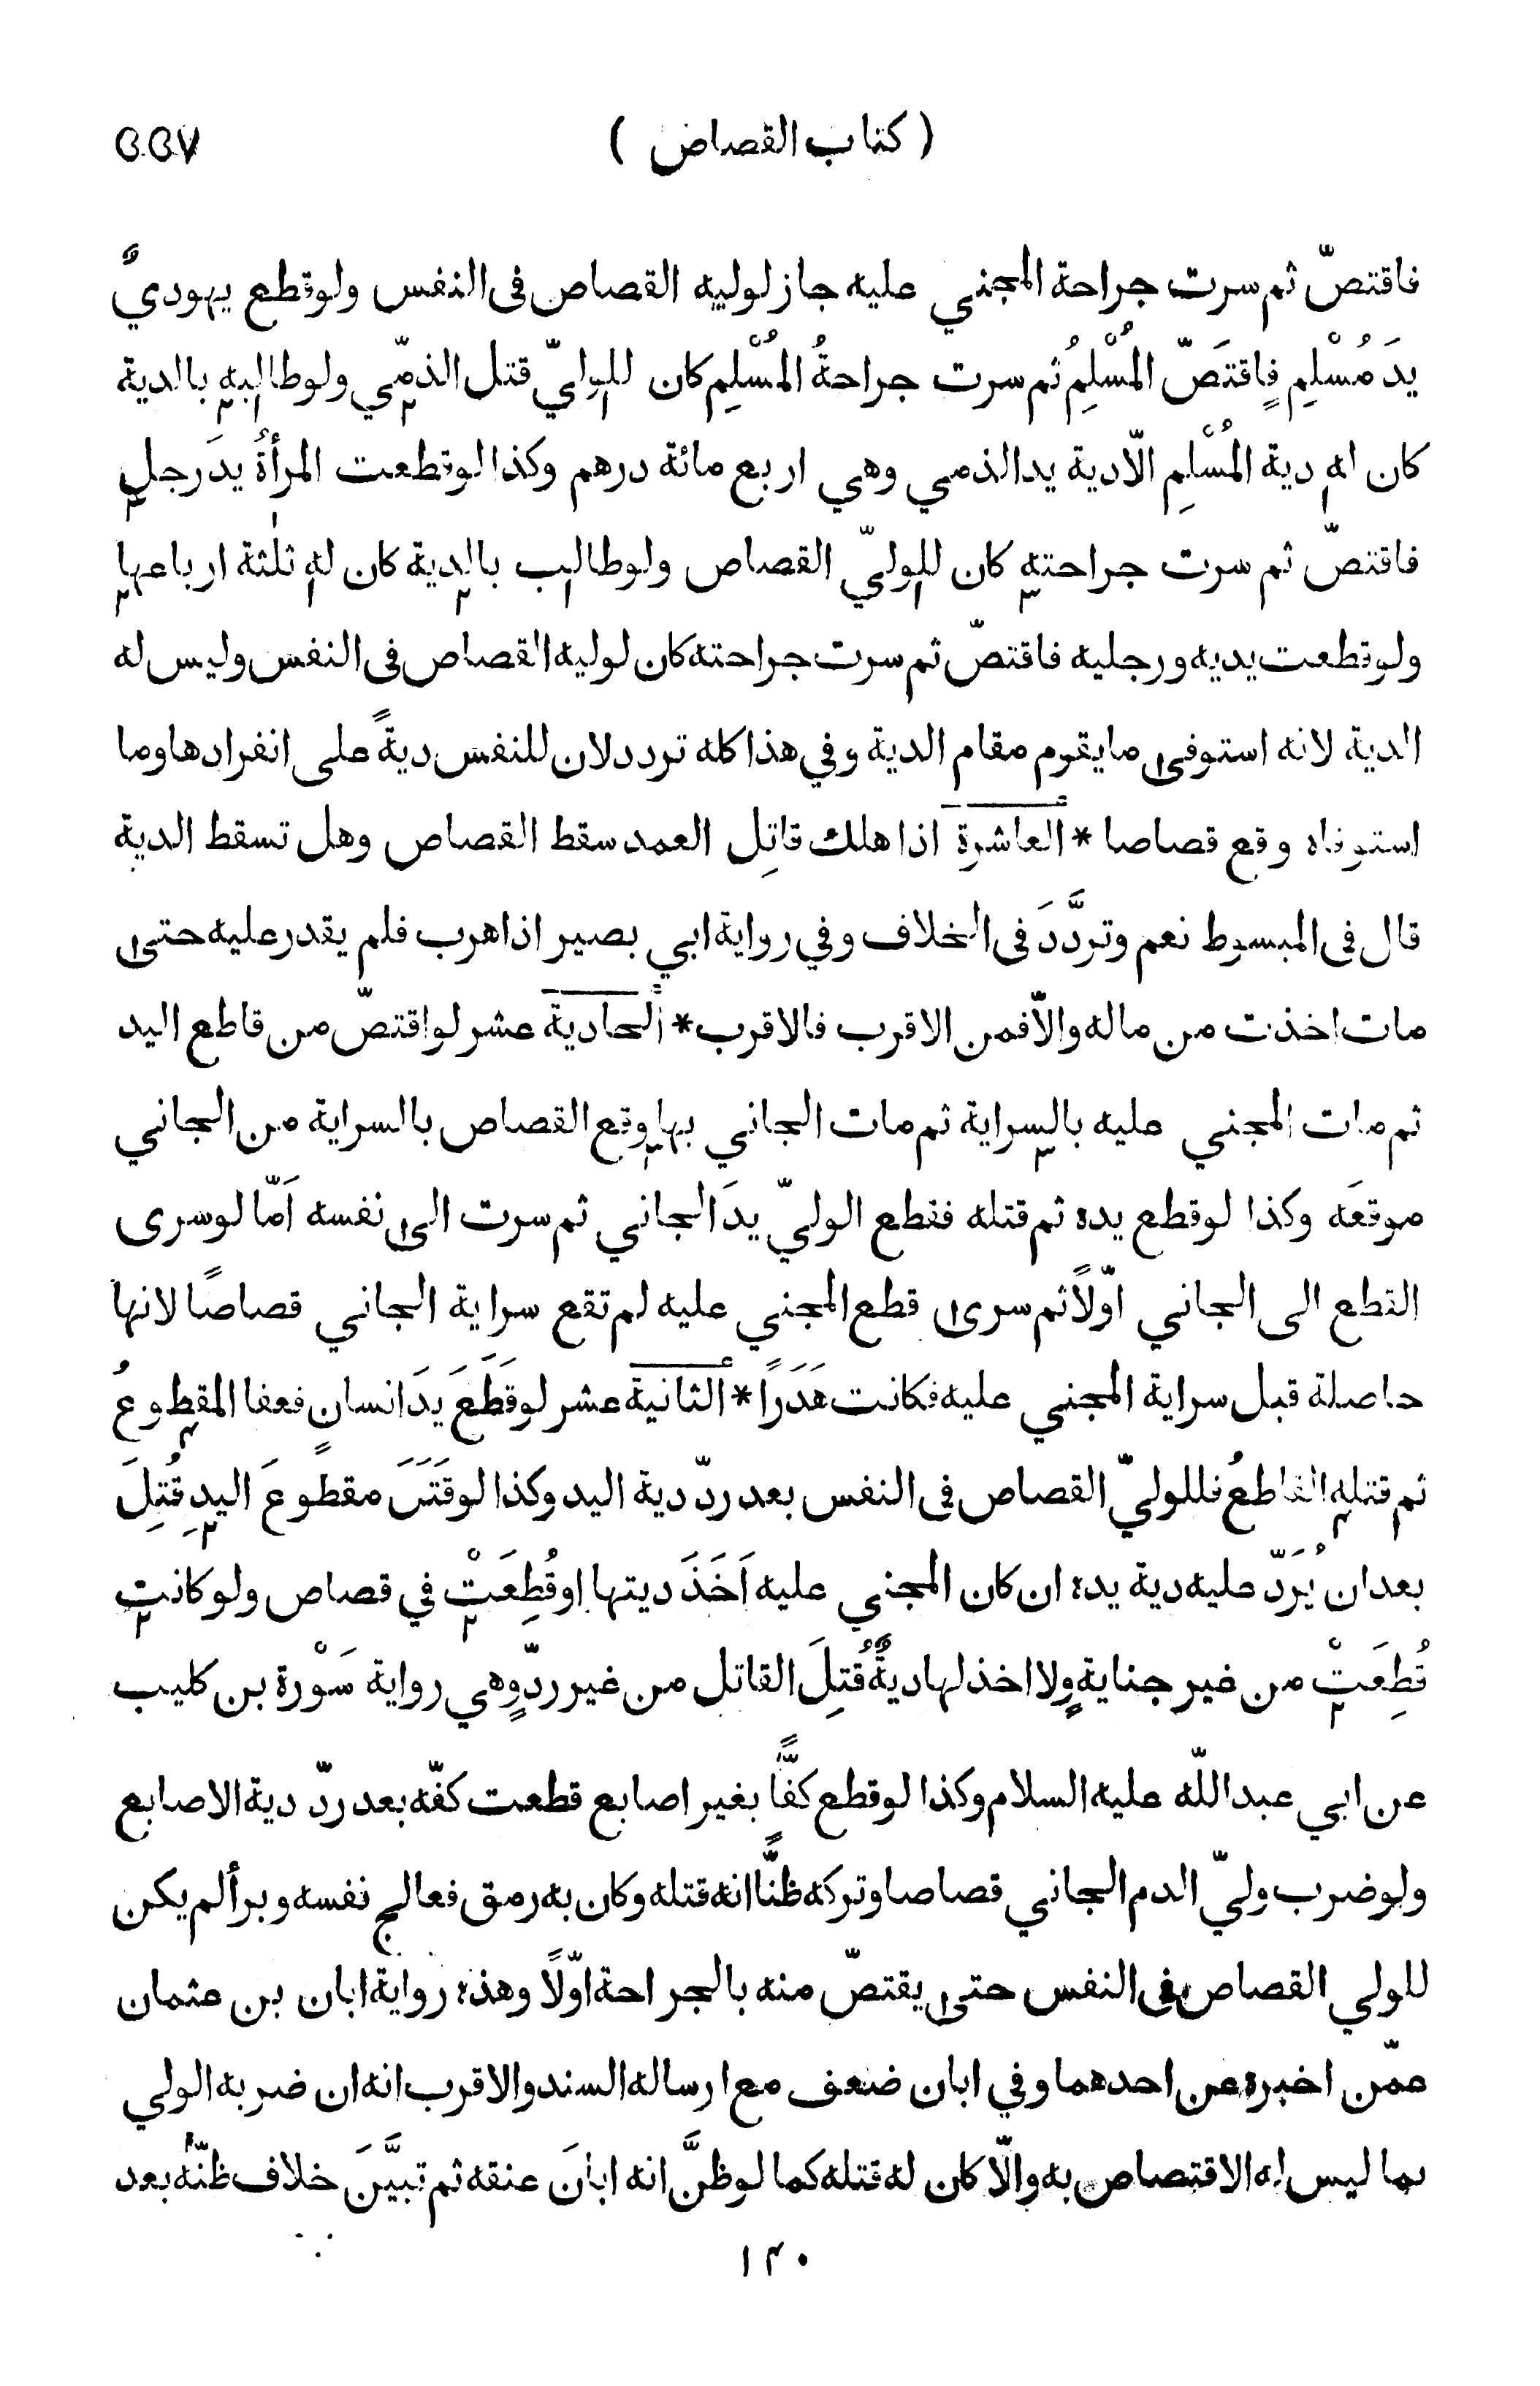 ( كتاب القصاص ) ٥٥٧
فاقتصّ ثم سرت جراحة المجني عليه جاز لوليه القصاص فى النفس ولوقطع يهوديٌّ
يدَ مُسْلِمٍ فاقتَصّ المُسْلِمُ ثم سرت جراحةُ المُسْلِمِ كان للوليّ قتل الذمّي ولوطالب بالدية
كان له دية المُسْلِمِ الّا دية يد الذمي وهي اربع مائة درهم وكذا لوقطعت المرأةُ يدَ رجلٍ
فاقتصّ ثم سرت جراحته كان للوليّ القصاص ولوطالب بالدية كان له ثلٰثة ارباعها
ولوقطعت يديه ورجليه فاقتصّ ثم سرت جراحته كان لوليه القصاص فى النفس وليس له
الدية لانه استوفى ما يقوم مقام الدية وفي هذا كله تردد لان للنفس ديةً على انفرادها وما
استوفاه وقع قصاصا * العاشرة اذا هلك قاتِل العمد سقط القصاص وهل تسقط الدية
قال فى المبسوط نعم وتردَّدَ فى الخلاف وفي رواية ابي بصير اذا هرب فلم يقدر عليه حتى
مات اخذت من ماله والّا فمن الاقرب فالاقرب * الحادية عشر لواقتصّ من قاطع اليد
ثم مات المجني عليه بالسراية ثم مات الجاني بها وقع القصاص بالسراية من الجاني
موقعَه وكذا لوقطع يده ثم قتله فقطع الوليّ يدَ الجاني ثم سرت الى نفسه اَمّا لوسرى
القطع الى الجاني اوّلاً ثم سرى قطع المجني عليه لم تقع سراية الجاني قصاصًا لانها
حاصلة قبل سراية المجني عليه فكانت هَدَرًا * الثانية عشر لوقَطَعَ يدَ انسانٍ فعفا المقطوعُ
ثم قتله القاطعُ فللوليّ القصاص فى النفس بعد ردّ دية اليد وكذا لوقَتَلَ مقطوعَ اليدِ قُتِلَ
بعد ان يُرَدّ عليه دية يده ان كان المجني عليه اَخَذَ ديتها اوقُطِعَتْ في قصاص ولو كانت
قُطِعَتْ من غير جناية ولا اخذ لها ديةً قُتِلَ القاتل من غير ردّ وهي رواية سَوْرة بن كليب
عن ابي عبد اللّه عليه السلام وكذا لوقطع كفًّا بغير اصابع قطعت كفّه بعد ردّ دية الاصابع
ولوضرب وليّ الدم الجاني قصاصا وتركه ظنًّا انه قتله وكان به رمق فعالج نفسه وبرأ لم يكن
للولي القصاص فى النفس حتى يقتصّ منه بالجراحة اوّلاً وهذه رواية ابان بن عثمان
عمّن اخبره عن احدهما وفي ابان ضعف مع ارساله السند والاقرب انه ان ضربه الولي
بما ليس له الاقتصاص به والّا كان له قتله كما لوظنَّ انه ابانَ عنقه ثم تبيَّنَ خلاف ظنّه بعد
١٤٠